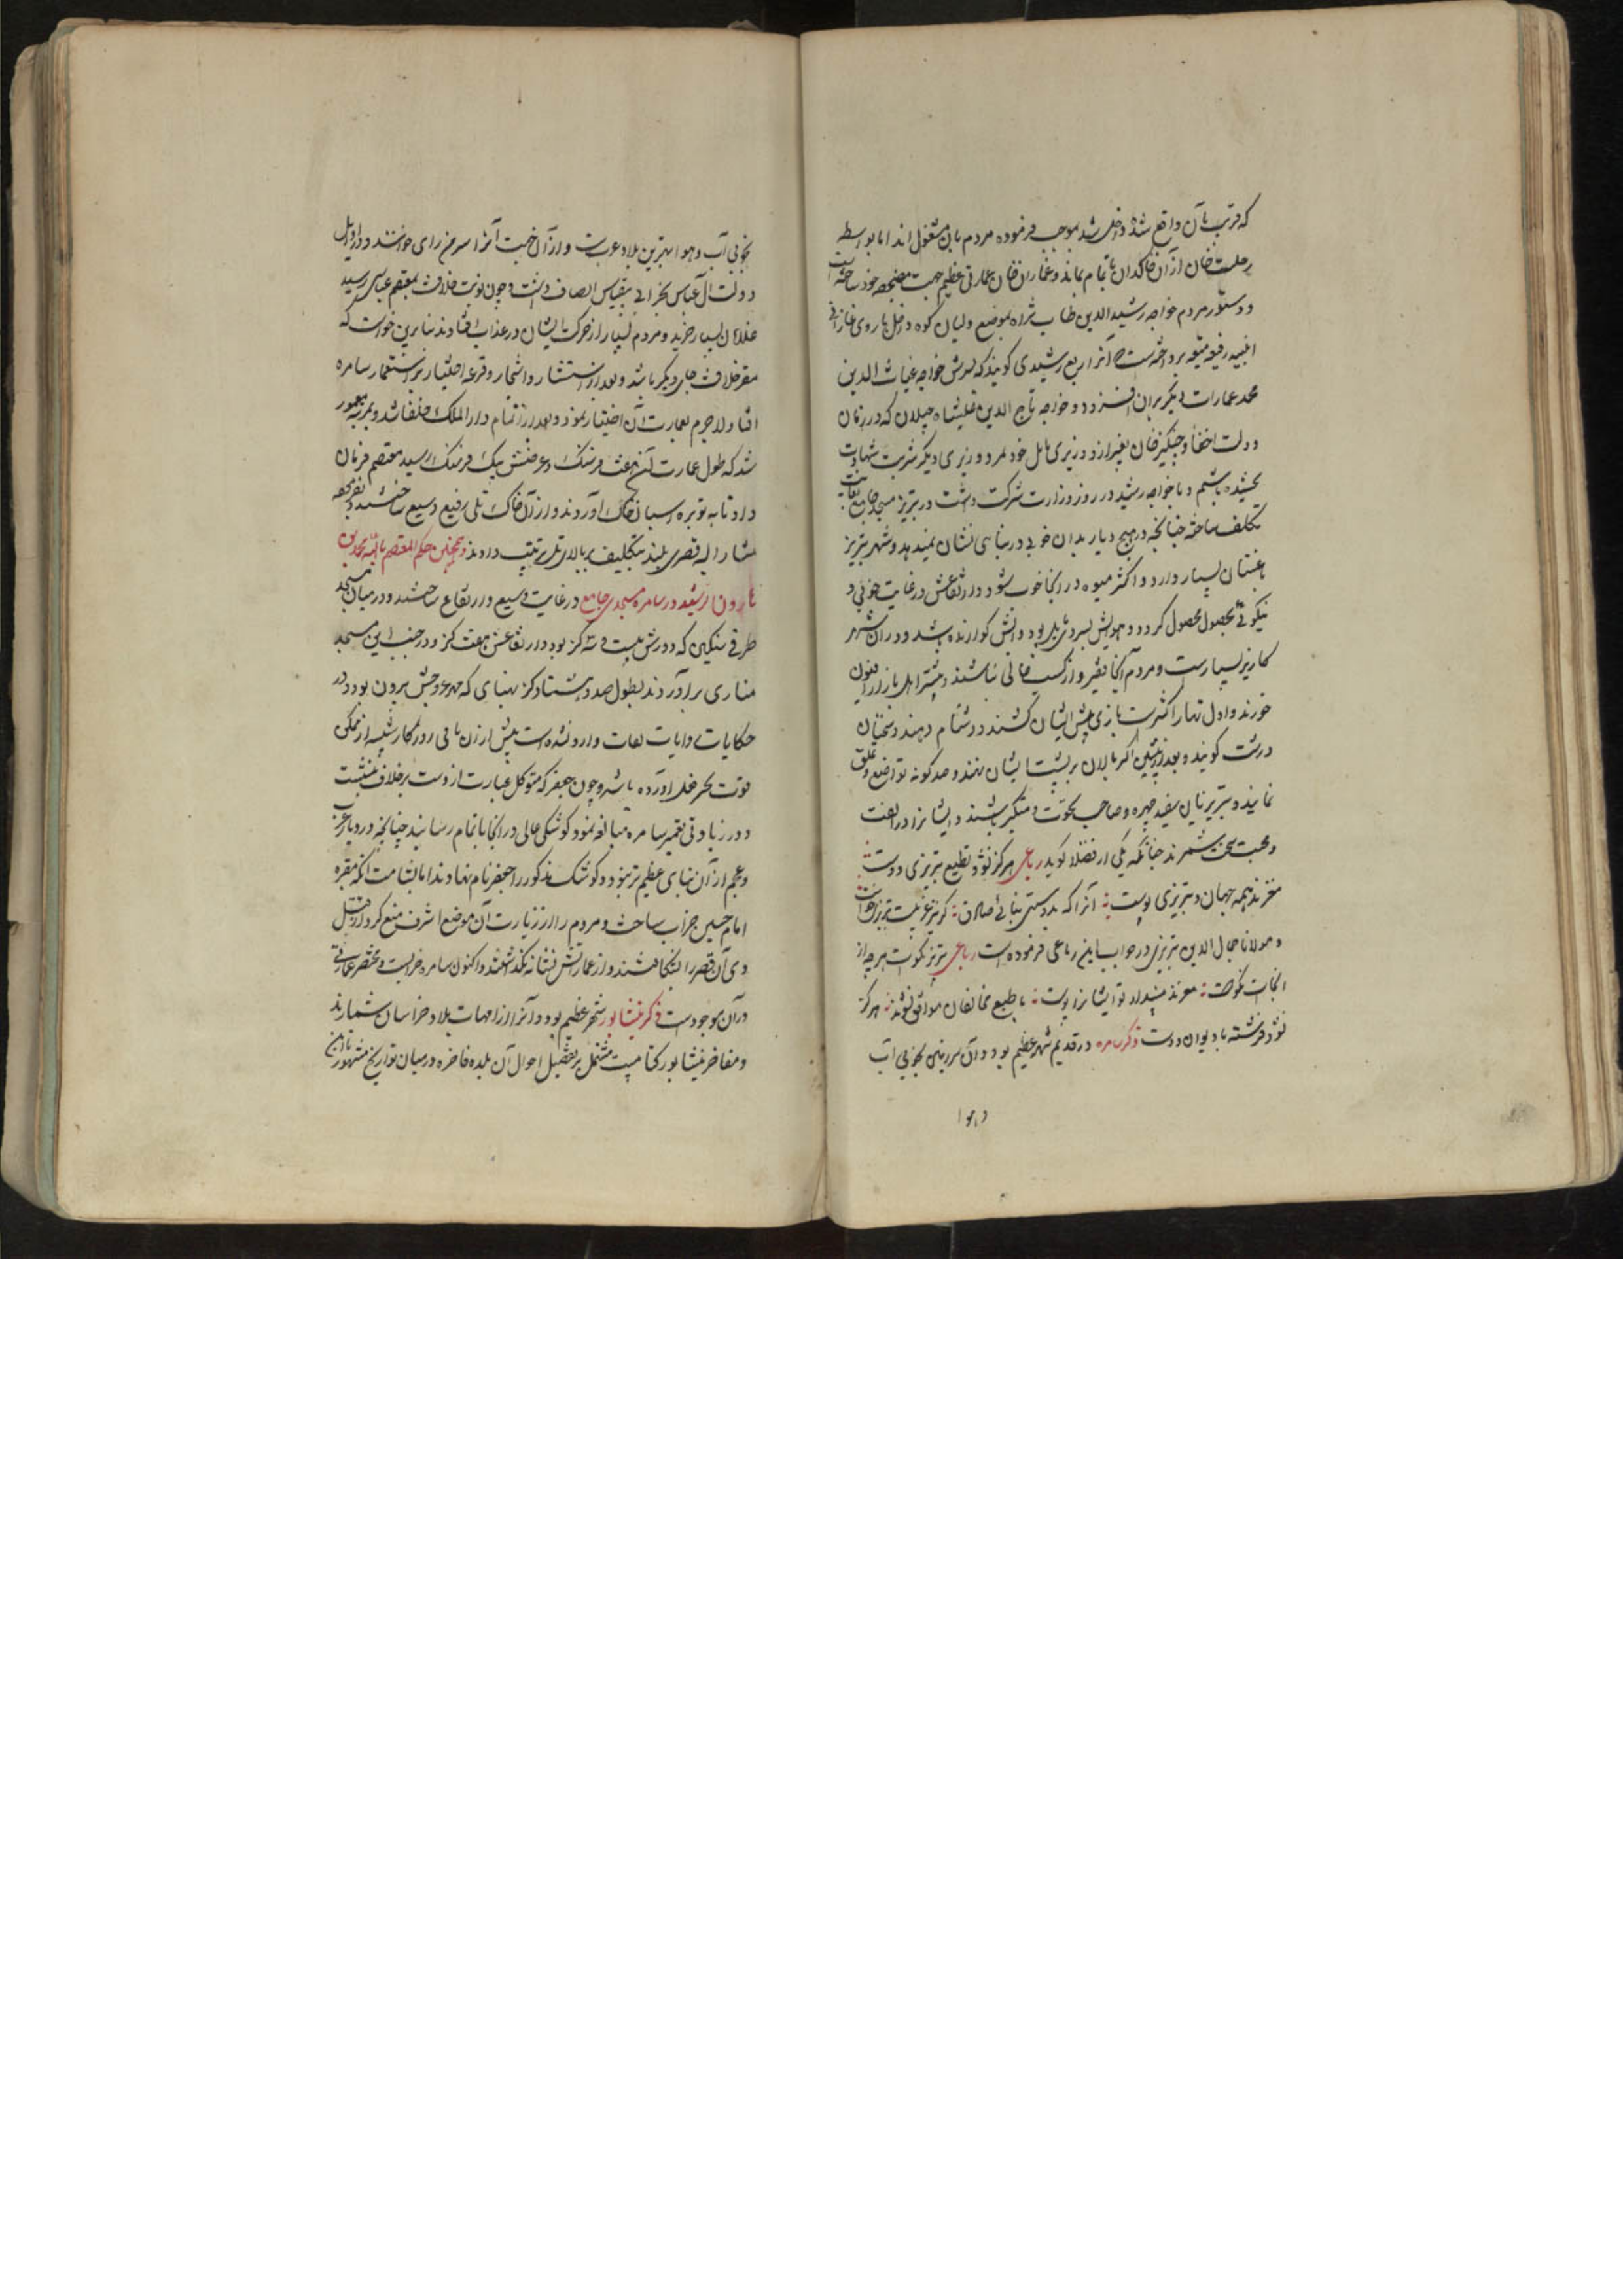 که قرب بآن واقع شده داخل شد بموجب فرموده مردم بآن مشغول اند اما بواسطه
رحلت خان از آن خاکدان ناتمام بماند و غازان خان عمارتی عظیم جهت مضجع خود ساخته است
و دستور مردم خواجه رشید الدین طاب ثراه بموضع ولیان کوه داخل باروی غازانی
ابنیه رفیعه متیعه پرداخته است آنرا ربع رشیدی گویند که پسرش خواجه غیاث الدین
محمد عمارات دیگر بران افزود و خواجه تاج الدین علیشاه جیلان که در زمان
دولت احفاد چنگیز خان بغیر از و وزیری باجل خود نمرد و وزیری دیگر شربت شهادت
نچشیده باشیم و با خواجه رشید در روز وزارت شرکت داشت در تبریز مسجد جامع بغایت
تکلف ساخته چنانچه در هیچ دیار بدان خوبی در بنایی نشان نمیدهد و شهر تبریز
باغستان بسیار دارد و اکثر میوه در انجا خوب شود و ارتفاعش در غایت خوبی و
نیکوئی محصول کردد و هوایش بسردی مایل بود و آبش کوارنده باشد و در ان شهر
کاریز بسیارست و مردم آنجا فقیر و از کسب خالی نباشند و بیشتر اهل بازار افیون
خورند و اول نهار اکثرست بازی پیش ایشان کشند و دشنام دهند و سخنان
درشت گویند و بعد از پیشین اکر پالان بر پشت ایشان نهند و صد گونه تواضع و تملق
نمایند و تبریزیان سفید چهره و صاحب نخوت و متکبر باشند و ایشانرا در الفت
و محبت سخن شمرند چنانکه یکی از فضلا گوید رباعی هرگز نشود بطبع تبریزی دوست
مغزند همه جهان و تبریزی پوست آنرا که بدوستی نیابی صادق گر نیز غریبست تبریزی خوست
و مولانا جمال الدین تبریزی در جواب این رباعی فرموده است رباعی تبریز نکوست هر چه از
انجاست نکوست مغزند مپندار تو ایشانرا پوست با طبع مخالفان موافق نشوند هرگز
نشود فرشته با دیوان دوست ذکر سامره در قدیم شهر عظیم بود و آن سرزمین بخوبی آب
و هوا
بخوبی آب و هوا بهترین بلاد عربست و از آن جهت آنرا سر من رای خواندند و در اوایل
دولت آل عباس بخرابی بنقیاس اتصاف داشت و چون نوبت خلافت بمعتصم عباسی رسید
غلامان بسیار خرید و مردم بسیار از حرکت ایشان در عذاب افتادند بنا برین خواست که
مقر خلافت جای دیگر باشد و بعد از استشار و استخار و قرعه اختیار بر استعمار سامره
افتاد لاجرم بعمارت آن اختیار نمود و بعد از اتمام دار الملک خلفا شد و بمرتبه معمور
شد که طول عمارت آن هفت فرسنک و عرضش یک فرسنک رسید معتصم فرمان
داد تا به توبره اسبان خاک آوردند و از آن خاک تلی رفیع وسیع ساختند و بفرموده
مشار الیه قصری بلند بتکلیف بر بالای تل ترتیب دادند و همچنین بحکم المعتصم بالله محمد بن
هارون الرشید در سامره مسجدی جامع در غایت وسیع و ارتفاع ساختند و در میان مسجد
ظرفی سنگین که دورش بیست و سه گز بود و ارتفاعش هفت گز و در جنب این مسجد
مناری برآوردند بطول صد و هشتاد گز بهنبای که ممر عروجش بیرون بود و در
حکایات و روایات ثقات وارد نشده است پیش از آن بانی روزگار شبیه آن از ممکن
قوت بحیز فعل آورده باشد و چون جعفر که متوکل عبارت از وست بر خلافت نشست
و در زیادتی تعمیر سامره مبالغه نمود کوشکی عالی در انجا باتمام رسانید چنانچه در دیار عرب
و عجم از آن بنای عظیم تر نبود و کوشک مذکور را جعفر نام نهادند اما بشامت آنکه مقبره
امام حسین خراب ساخت و مردم را از زیارت آن موضع اشرف منع کرد از قتل
وی آن قصر را بشکافتند و از عمارتش نشانه نگذاشتند و اکنون سامره خرابست و مختصر عمارتی
در آن موجودست ذکر نیشابور شهر عظیم بود و آنرا از امهات بلاد خراسان شمارند
و مفاخر نیشابور کتابیست مشتمل بر تفصیل احوال آن بلده فاخره در میان تواریخ مشهور